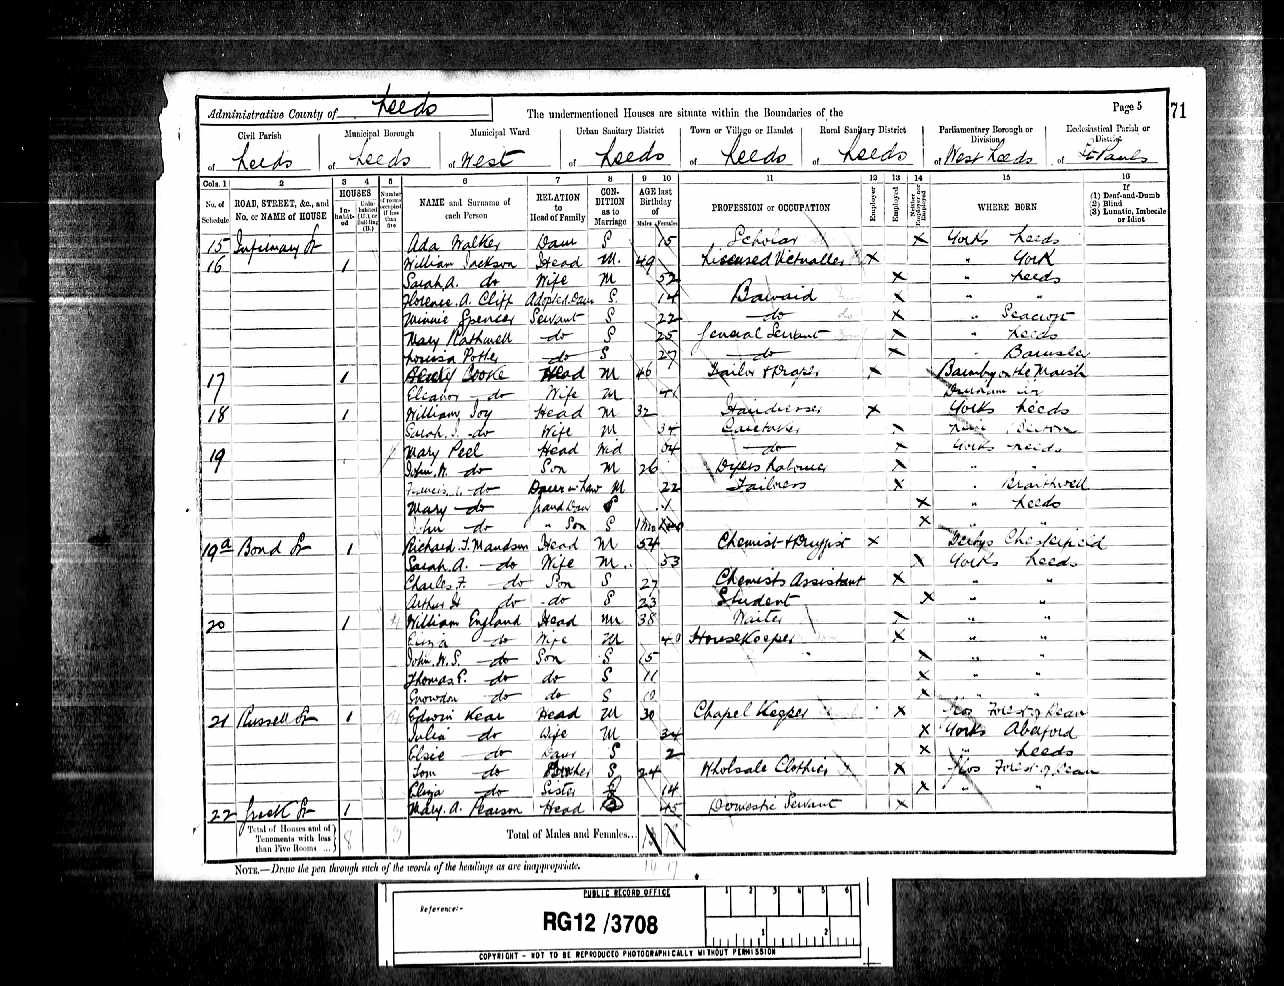 Administrative County of Leeds The undermentioned Houses are situate within the Boundaries of the Page 5 71
Civil Parish Municipal Borough Municipal Ward Urban Sanitary District Town or Village or Hamlet Rural Sanitary District Parliamentary Borough or Division Ecclesiastical Parish or District
of Leeds of Leeds of West of Leeds of Leeds of Leeds of West Leeds of St Pauls
Cols. 1 2 3 4 5 6 7 8 9 10 11 12 13 14 15 16
No. of Schedule ROAD, STREET, &c., and No. or NAME of HOUSE HOUSES Inhabited Uninhabited (U.), or Building (B.) Number of rooms occupied if less than five NAME and Surname of each Person RELATION to Head of Family CONDITION as to Marriage AGE last Birthday of Males Females PROFESSION or OCCUPATION Employer Employed Neither Employer nor Employed WHERE BORN If (1) Deaf-and-Dumb (2) Blind (3) Lunatic, Imbecile or Idiot
15 Infirmary St Ada Walker Daur S 15 Scholar X Yorks Leeds
16 1 William Jackson Head M. 49 Licensed Victualler X " York
Sarah A. do Wife M 52 X " Leeds
Florence. A. Cliff Adopted Daur S. 14 Barmaid X " "
Minnie Spencer Servant S 22 do X " Seacroft
Mary Rothwell do S 25 General Servant X " Leeds
Louisa Potter do S 27 do X " Barnsley
17 1 Cooke Head M 46 Tailor & Draper X Barnby on the Marsh
Eleanor do Wife M Durham
18 1 William Joy Head M 32 X Yorks Leeds
Sarah. J. do Wife M 34 Caretaker X
19 Mary Peel Head Wid 54 do X Yorks Leeds
John. W. do Son M 26 Dyers Labourer X " "
do Daur in Law M 22 Tailoress X " Braithwell
Mary do Grand Daur S 1 X " Leeds
John do " Son S 1 Mo X " "
19a Bond St 1 Richard T. Mandson Head M 54 Chemist & Druggist X Derbys Chesterfield
Sarah. A. do Wife M. 53 X Yorks Leeds
Charles F. do Son S 27 Chemists Assistant X " "
Arthur H do do S 23 Student X " "
20 1 William England Head M 38 Waiter X " "
Eliza do Wife M 40 Housekeeper X " "
John. W. S. do Son S 15 X " "
Thomas E. do do S 11 X " "
Snowdon do do S 10 X " "
21 Russell St 1 Edwin Kear Head M 30 Chapel Keeper X Glos Forest of Dean
Julia do Wife M 34 X Yorks Aberford
Elsie do Daur S 2 X " Leeds
Tom do Brother S 24 Wholesale Clothier X Glos Forest of Dean
Eliza do Sister S 14 X " "
22 Greek St 1 Mary. A. Pearson Head S 45 Domestic Servant X
Total of Houses and of Tenements with less than Five Rooms ... 8 Total of Males and Females...
NOTE.—Draw the pen through such of the words of the headings as are inappropriate.
PUBLIC RECORD OFFICE 1 2 3 4 5 6
Reference:-
RG12/3708
1 2
COPYRIGHT - NOT TO BE REPRODUCED PHOTOGRAPHICALLY WITHOUT PERMISSION